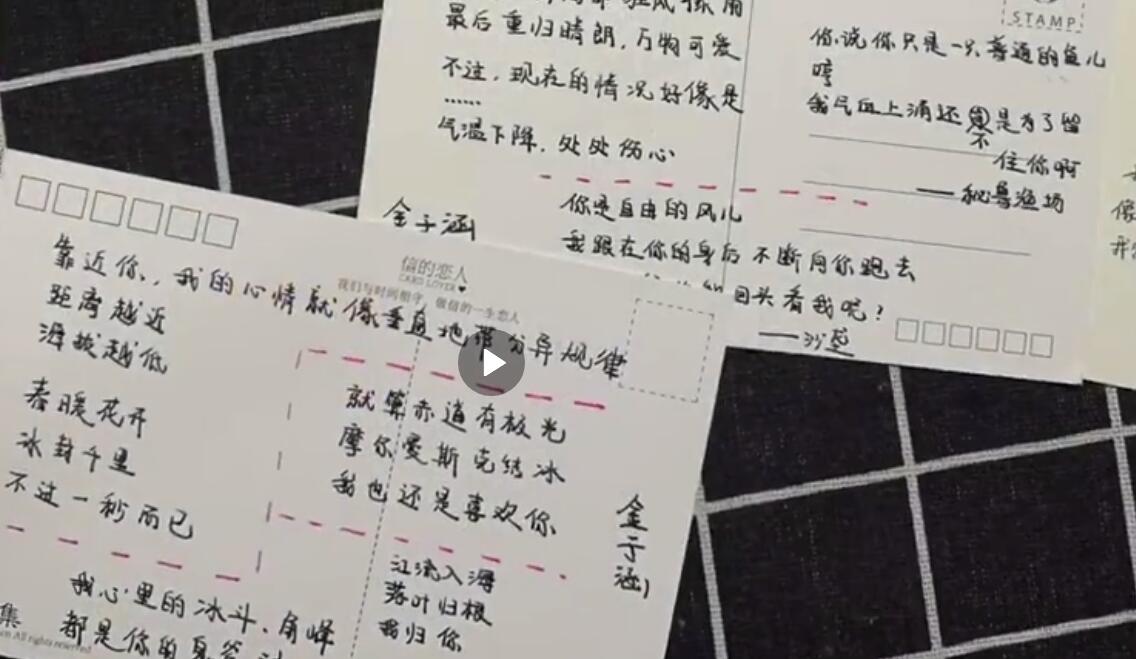 最后重归晴朗,万物可爱
不过,现在的情况好像是
……
气温下降,处处伤心
金子涵
STAMP
你说你只是一只普通的鱼儿
哼
我气血上涌还不是为了留
住你啊
——秘鲁渔场
你是自由的风儿
我跟在你的身后不断向你跑去
回头看我呢?
——沙丘
信的恋人
CARD LOVER
我们与时间相守,做信的一生恋人
靠近你,我的心情就像垂直地带分异规律
距离越近
海拔越低
春暖花开
冰封千里
不过一秒而已
就算赤道有极光
摩尔曼斯克结冰
我也还是喜欢你
金子涵
江流入海
落叶归根
我归你
我心里的冰斗、角峰
都是你的
集
All rights reserved